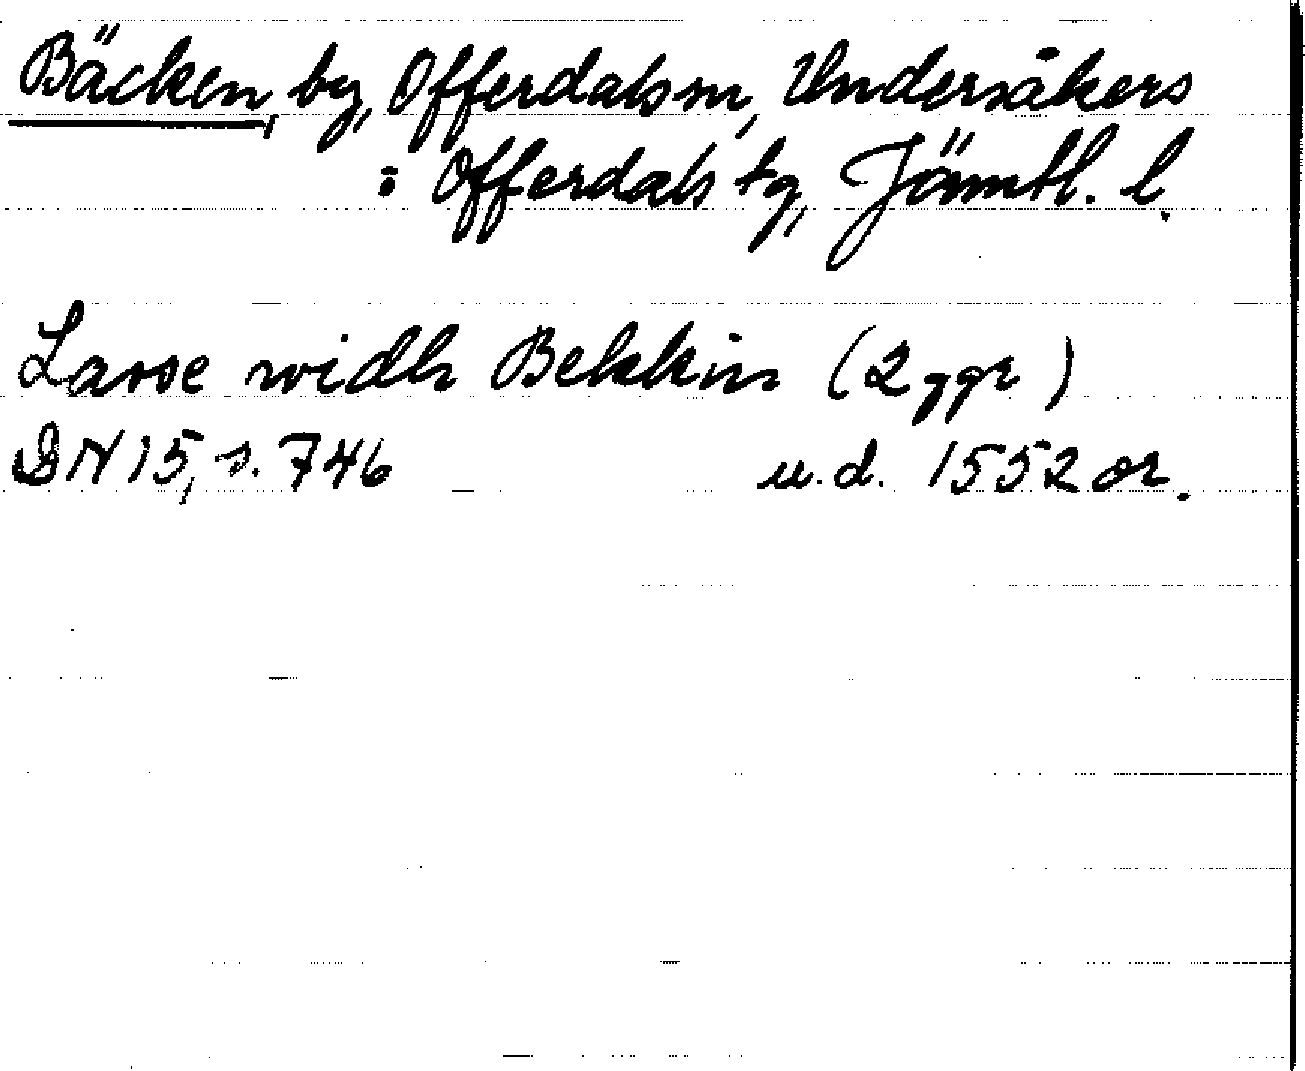 Bäcken, by, Offerdals sn, Undersåkers
o Offerdals tg, Jämtl. l.
Lasse widh Bekkin (2 ggr)
DN 15, s. 746 u.d. 1552 or.